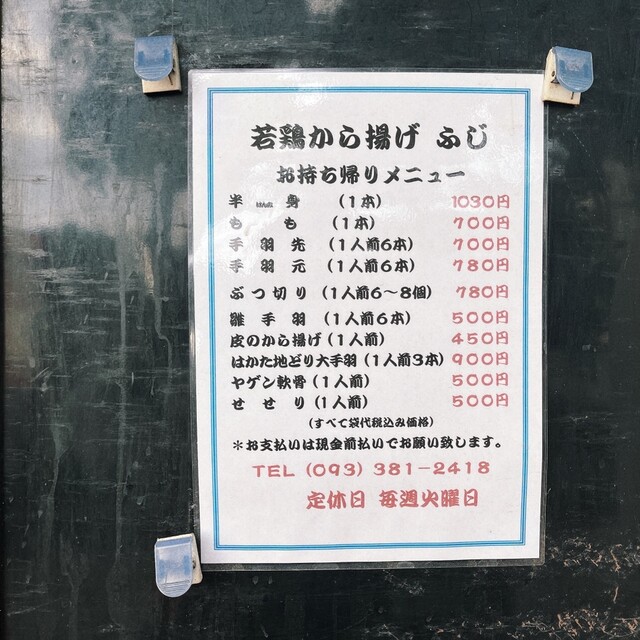 若鶏から揚げ ふじ
お持ち帰りメニュー
半はんみ身 (1本) 1030円
もも (1本) 700円
手羽先 (1人前6本) 700円
手羽元 (1人前6本) 780円
ぶつ切り (1人前6～8個) 780円
雛手羽 (1人前6本) 500円
皮のから揚げ (1人前) 450円
はかた地どり大手羽 (1人前3本) 900円
ヤゲン軟骨 (1人前) 500円
せせり (1人前) 500円
(すべて袋代税込み価格)
＊お支払いは現金前払いでお願い致します。
TEL (093) 381-2418
定休日 毎週火曜日